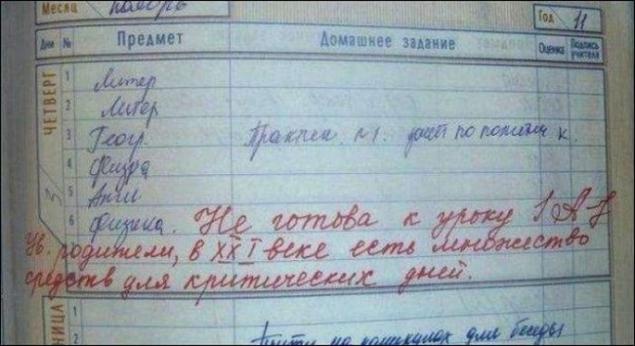 Месяц ноябрь Год 11
Дни № Предмет Домашнее задание Оценка Подпись учителя
ЧЕТВЕРГ 3
1 Литер
2 Литер
3 Геогр. Практич. №1.
4 Физра
5 Англ
6 Физика. Не готова к уроку
Ув. родители, в XXI веке есть множество
средств для критических дней.
НИЦА
1 на каникулах для беседы
2
3